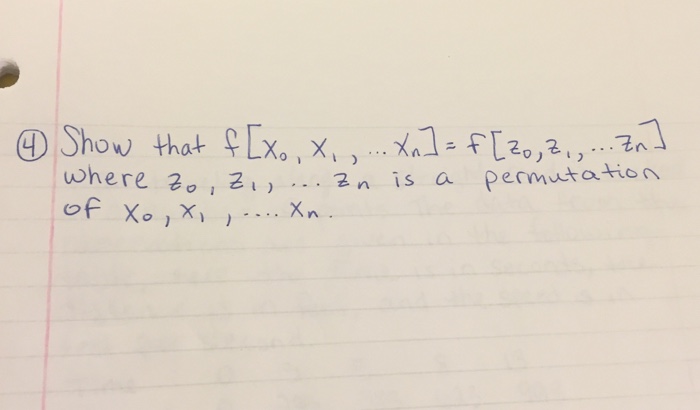 ④ Show that f[x₀, x₁, ... xₙ] = f[z₀, z₁, ... zₙ]
where z₀, z₁, ... zₙ is a permutation
of x₀, x₁, .... xₙ.